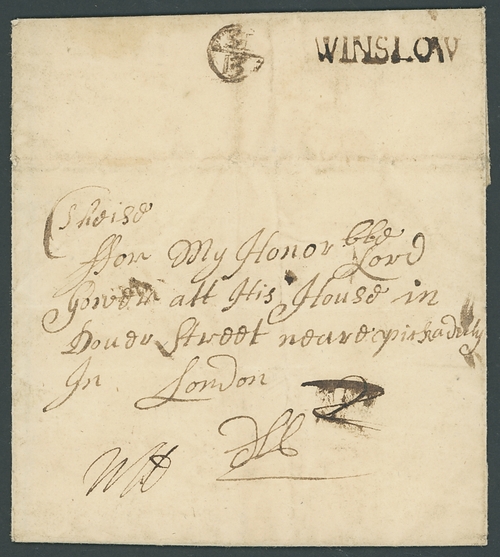 WINSLOW
ffor My Honor bble
Lord
Gower att His House in
Dover Street neare pickadily
In London